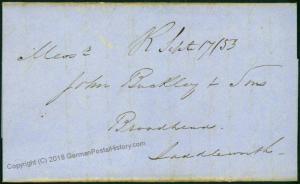 Messrs R Sept 17/53
John Buckley & Sons
Broadhead
Saddleworth
Copyright © 2018 GermanPostalHistory.com